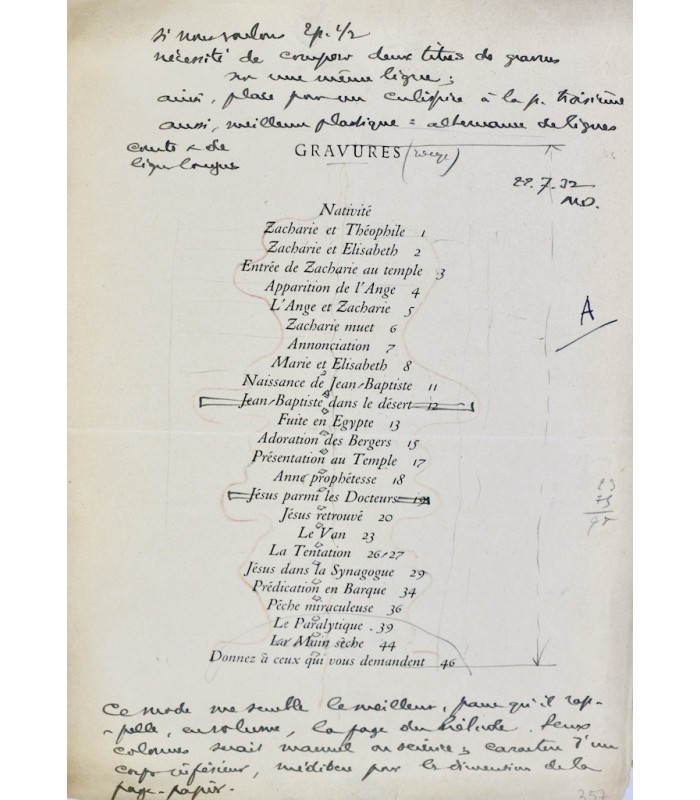 si nous voulons Ep. 1/2
nécessité de composer deux titres de gravures
sur une même ligne ;
ainsi, place pour un cul à la p. troisième
aussi, meilleure plastique = alternance de lignes
courtes & de
lignes longues
GRAVURES (rouge)
29.7.32
M.D.
Nativité
Zacharie et Théophile 1
Zacharie et Elisabeth 2
Entrée de Zacharie au temple 3
Apparition de l'Ange 4
L'Ange et Zacharie 5
A
Zacharie muet 6
Annonciation 7
Marie et Elisabeth 8
Naissance de Jean-Baptiste 11
Jean-Baptiste dans le désert 12
Fuite en Egypte 13
Adoration des Bergers 15
Présentation au Temple 17
Anne prophétesse 18
Jésus parmi les Docteurs 19
Jésus retrouvé 20
Le Van 23
La Tentation 26/27
Jésus dans la Synagogue 29
Prédication en Barque 34
Pêche miraculeuse 36
Le Paralytique . 39
La Main sèche 44
Donnez à ceux qui vous demandent 46
Ce mode me semble le meilleur, parce qu'il rap-
-pelle, en volume, la page du prélude. Deux
colonnes serait manuel ou science ; caractère d'un
corps inférieur, pour la dimension de la
page-papier.
357